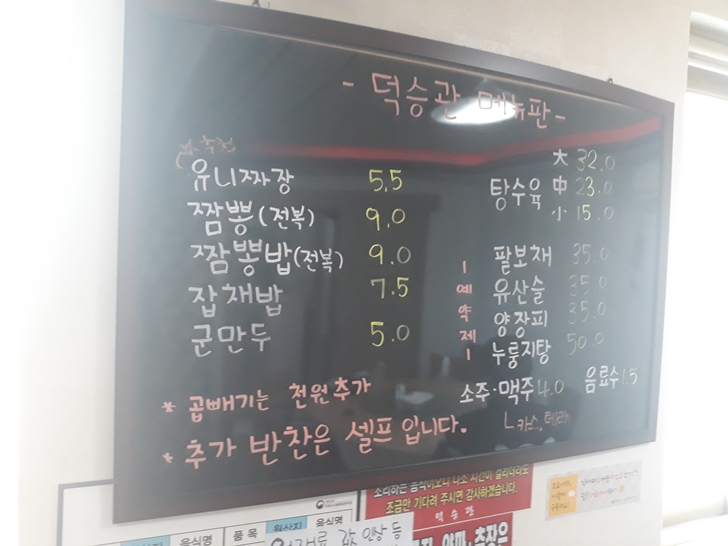 - 덕승관 메뉴판 -
추천
유니짜장 5.5
짬뽕(전복) 9.0
짬뽕밥(전복) 9.0
잡채밥 7.5
군만두 5.0
탕수육 大 32.0
中 23.0
小 15.0
-예약제-
팔보채 35.0
유산슬 35.0
양장피 35.0
누룽지탕 50.0
소주·맥주 4.0 음료수 1.5
ㄴ카스, 테라
* 곱빼기는 천원추가
* 추가 반찬은 셀프입니다.
소리하는 음식이오니 다소 시간이 걸리더라도
조금만 기다려 주시면 감사하겠습니다.
덕승관
음식명 품목 원산지 음식명
값 인상 등